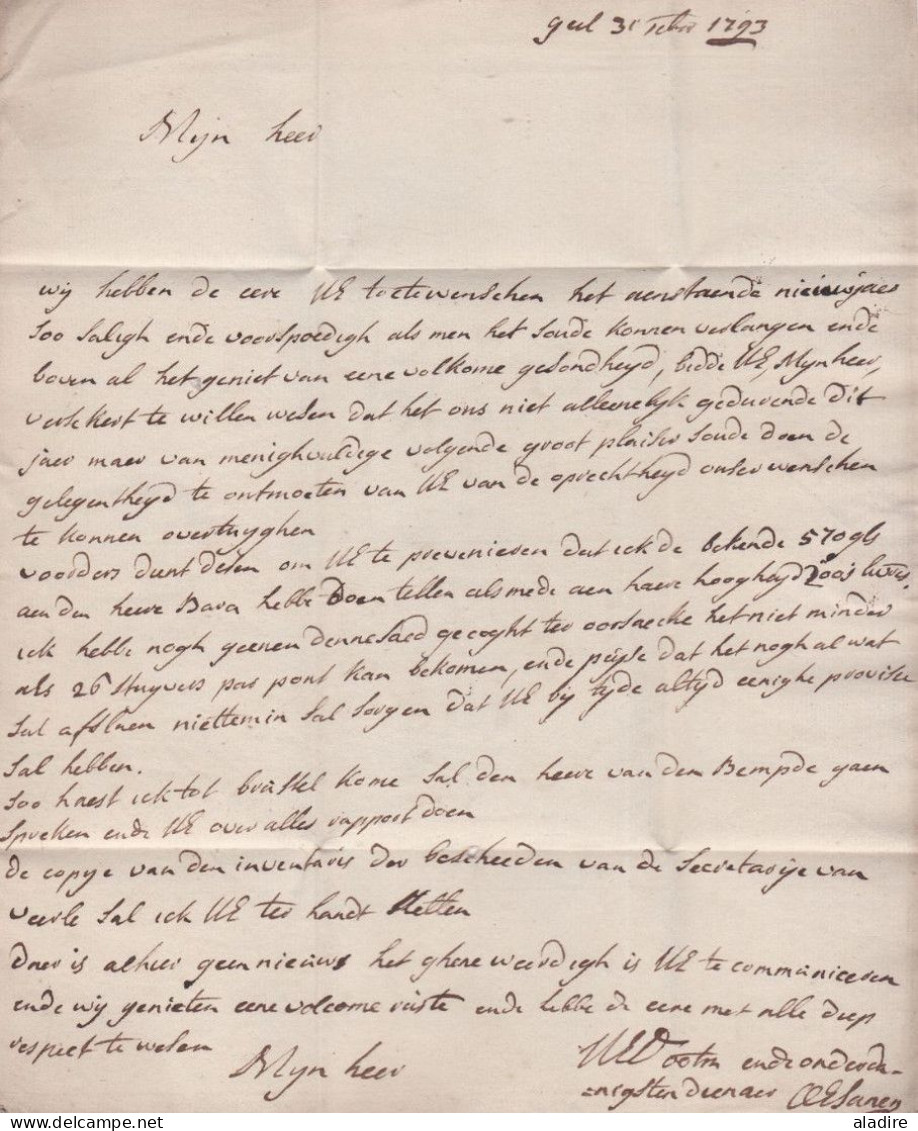 geel 31 1793
Mijn heer
wij hebben de eere UE toetewenschen het aenstaende nieuwjaer
soo saligh ende voorspoedigh als men het soude konnen verlangen ende
boven al het geniet van eene volkome gesondheyd, bidde UE, Mijnheer,
versekert te willen wesen dat het ons niet alleenelijk gedurende dit
jaer maer van menighvuldige volgende groot plaisir soude doen de
gelegentheyd te ontmoeten van UE van de oprechtheyd onser wenschen
te konnen overtuyghen
voorders dient desen om UE te prevenieren dat ick de bekende 570 gls
aen den heere Bara hebbe doen tellen als mede aen haere hoogheyd
ick hebbe nogh geenen dennesaed gecoght ter oorsaecke het niet minder
als 26 stuyvers par pont kan bekomen, ende peijse dat het nogh al wat
sal afslaen niettemin sal sorgen dat UE bij tyde altyd eenighe provisie
sal hebben.
soo haest ick tot brussel kome sal den heere van den Bempde gaen
spreken ende UE over alles rapport doen
de copye van den inventaris der bescheeden van de secretarije van
veerle sal ick UE ter handt stellen
daer is alhier geen nieuws het ghene weerdigh is UE te communiceren
ende wij genieten eene volcome ruste ende hebbe de eere met alle diep
respect te wesen
Mijn heer
ootm ende onderda-
-nigsten dienaer
aladire